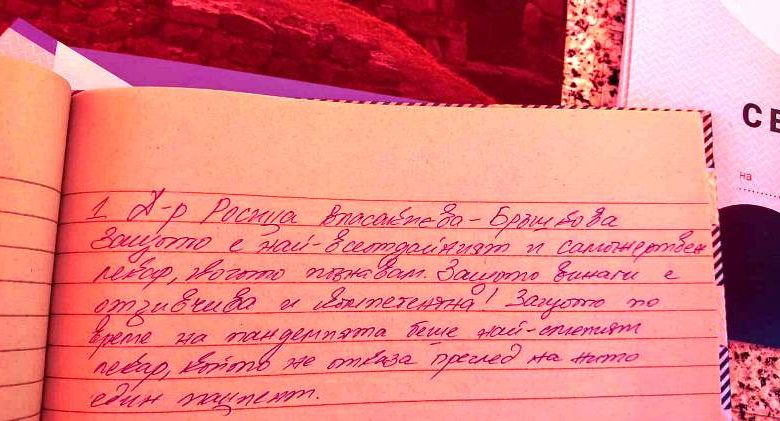 СЕ
на
1 Д-р Росица Власакиева-Бръшкова
Защото е най-всеотдайният и саможертвен
лекар, когото познавам. Защото винаги е
отзивчива и компетентна! Защото по
време на пандемията беше най-смелият
лекар, който не отказа преглед на нито
един пациент.